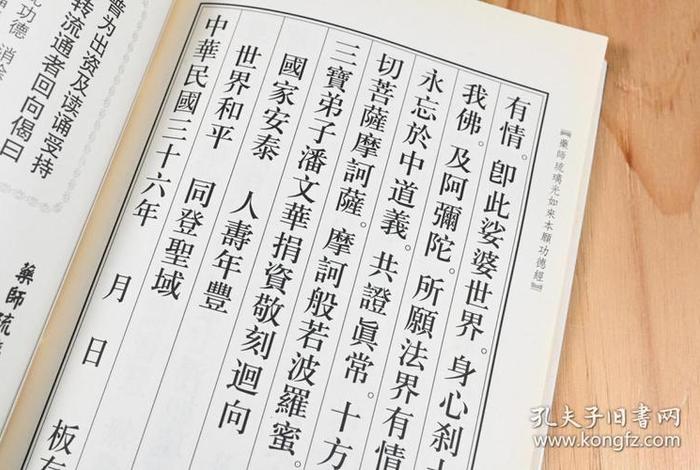 【藥師琉璃光如來本願功德經】
有情。卽此娑婆世界。身心刹
我佛。及阿彌陀。所願法界有情
永忘於中道義。共證眞常。十方
切菩薩摩訶薩。摩訶般若波羅蜜。
三寶弟子潘文華捐資敬刻迴向
國家安泰 人壽年豐
世界和平 同登聖域
中華民國三十六年 月 日 板
普为出资及读诵受持
转流通者回向偈曰
功德 消
藥師琉
孔夫子旧书网
www.kongfz.com